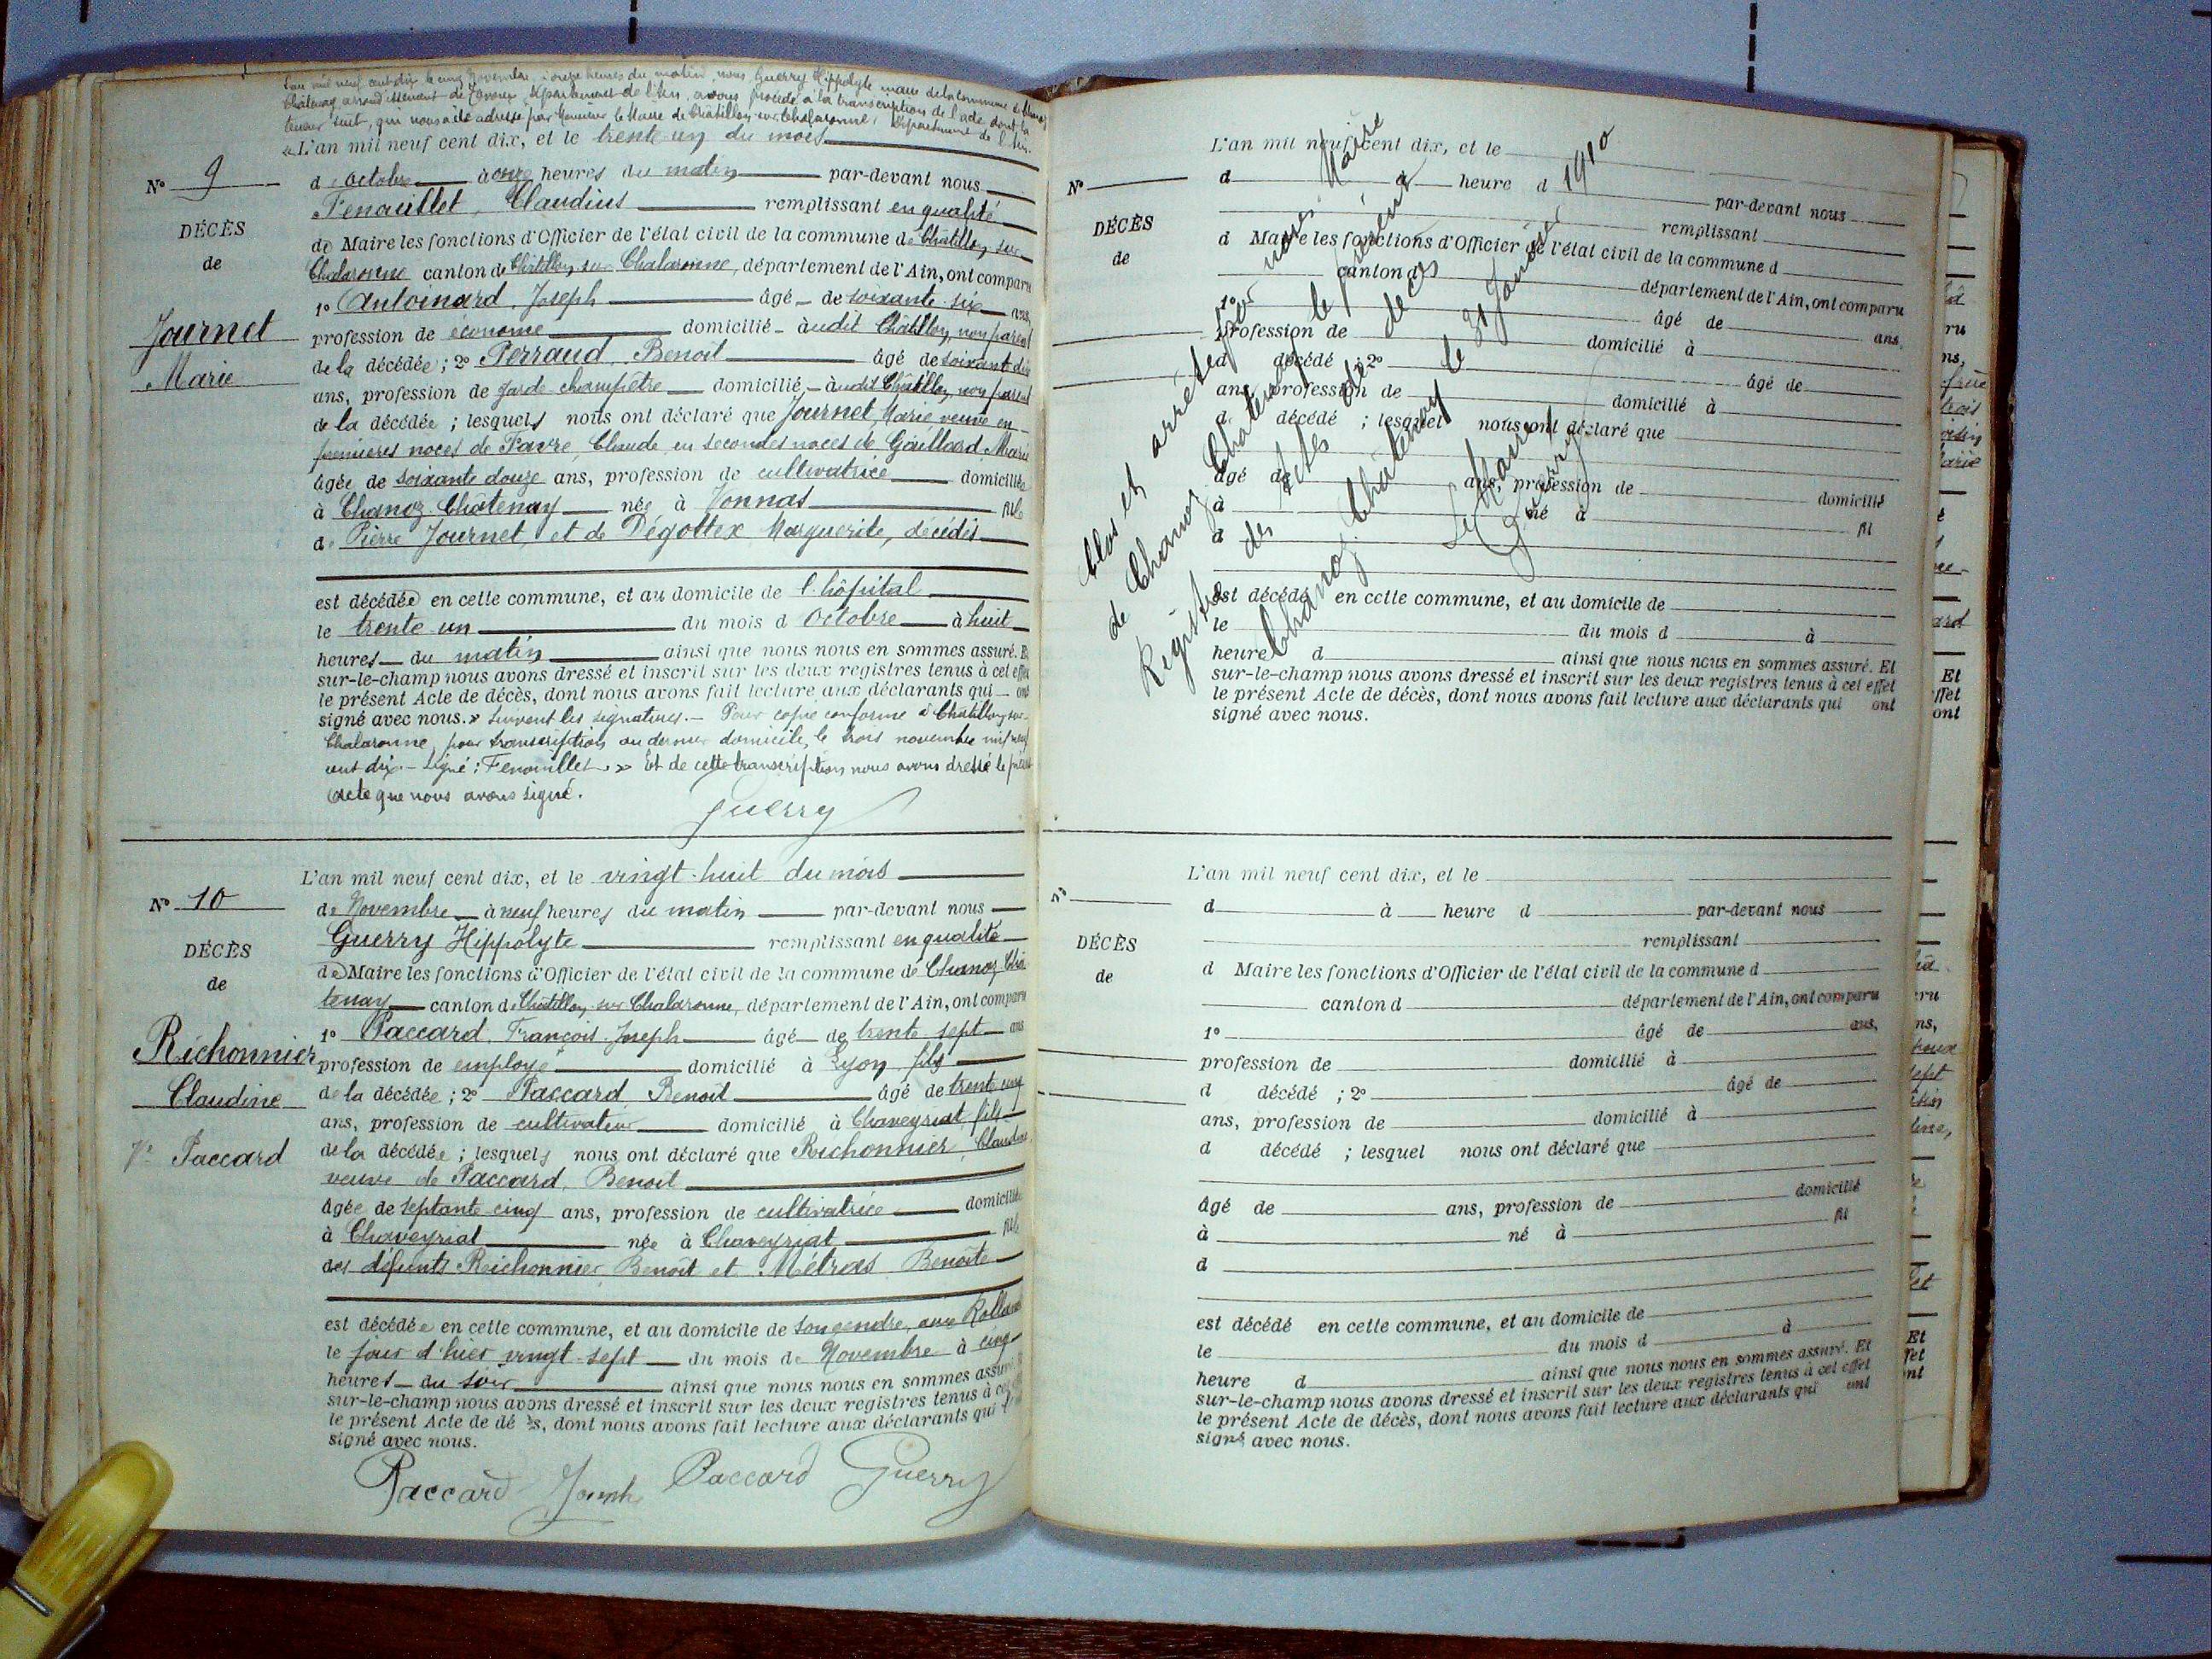 L'an mil neuf cent dix le cinq Novembre, à onze heures du matin, nous Guerry Hippolyte maire de la commune de Chanoz
Châtenay arrondissement de Trévoux, département de l'Ain, avons procédé à la transcription de l'acte dont la
teneur suit, qui nous a été adressé par Monsieur le Maire de Châtillon sur Chalaronne, département de l'Ain.
« L'an mil neuf cent dix, et le trente un du mois
N° 9
d'octobre à onze heures du matin par-devant nous
Fenouillet, Claudius remplissant en qualité
DÉCÈS
de Maire les fonctions d'Officier de l'état civil de la commune de Châtillon sur
de
Chalaronne canton de Châtillon sur Chalaronne, département de l'Ain, ont comparu
1° Antoinard, Joseph âgé de soixante six ans,
Journet
profession de économe domicilié à audit Châtillon, non parent
Marie
de la décédée ; 2° Perraud, Benoit âgé de soixante dix
ans, profession de garde champêtre domicilié, à audit Châtillon, non parent
de la décédée ; lesquels nous ont déclaré que Journet, Marie, veuve en
premières noces de Favre, Claude, en secondes noces de Gaillard Marie
âgée de soixante douze ans, profession de cultivatrice domiciliée
à Chanoz Châtenay née à Vonnas fille
de Pierre Journet, et de Dégottex Marguerite, décédés
est décédée en cette commune, et au domicile de l'hôpital
le trente un du mois d Octobre à huit
heures du matin ainsi que nous nous en sommes assuré. Et
sur-le-champ nous avons dressé et inscrit sur les deux registres tenus à cet effet
le présent Acte de décès, dont nous avons fait lecture aux déclarants qui ont
signé avec nous. » Suivent les signatures. – Pour copie conforme à Châtillon sur
Chalaronne, pour transcription au dernier domicile, le trois novembre mil neuf
cent dix. – Signé : Fenouillet. » Et de cette transcription nous avons dressé le présent
acte que nous avons signé.
Guerry
L'an mil neuf cent dix, et le vingt-huit du mois
N° 10
de Novembre à neuf heures du matin par-devant nous
Guerry Hippolyte remplissant en qualité
DÉCÈS
de Maire les fonctions d'Officier de l'état civil de la commune de Chanoz Châ
de
tenay canton de Châtillon sur Chalaronne, département de l'Ain, ont comparu
1° Paccard, François Joseph âgé de trente sept ans
Richonnier
profession de employé domicilié à Lyon fils
Claudine
de la décédée ; 2° Paccard Benoit âgé de trente cinq
ans, profession de cultivateur domicilié à Chaveyriat fils
Ve Paccard
de la décédée ; lesquels nous ont déclaré que Richonnier, Claudine
veuve de Paccard, Benoit
âgée de septante cinq ans, profession de cultivatrice domiciliée
à Chaveyriat née à Chaveyriat fille
des défunts Reichonnier Benoit et Métras Benoîte
est décédée en cette commune, et au domicile de son gendre, aux Rolland
le jour d'hier vingt-sept du mois de Novembre à cinq
heures du soir ainsi que nous nous en sommes assuré
sur-le-champ nous avons dressé et inscrit sur les deux registres tenus à cet
le présent Acte de décès, dont nous avons fait lecture aux déclarants qui
signé avec nous.
Paccard Joseph Paccard Guerry
L'an mil neuf cent dix, et le
N°
d à heure d par-devant nous
remplissant
DÉCÈS
d Maire les fonctions d'Officier de l'état civil de la commune d
de
canton d département de l'Ain, ont comparu
1° âgé de ans.
profession de domicilié à
d décédé ; 2° âgé de
ans, profession de domicilié à
d décédé ; lesquel nous ont déclaré que
âgé de ans, profession de domicilié
à né à fil
d
est décédé en cette commune, et au domicile de
le du mois d à
heure d ainsi que nous nous en sommes assuré. Et
sur-le-champ nous avons dressé et inscrit sur les deux registres tenus à cet effet
le présent Acte de décès, dont nous avons fait lecture aux déclarants qui ont
signé avec nous.
Clos et arrêté par nous Maire
de Chanoz Châtenay le présent
Registre des actes de décès
Chanoz Châtenay le 31 Janvier 1910
Le Maire
Guerry
L'an mil neuf cent dix, et le
N°
d à heure d par-devant nous
remplissant
DÉCÈS
d Maire les fonctions d'Officier de l'état civil de la commune d
de
canton d département de l'Ain, ont comparu
1° âgé de ans,
profession de domicilié à
d décédé ; 2° âgé de
ans, profession de domicilié à
d décédé ; lesquel nous ont déclaré que
âgé de ans, profession de domicilié
à né à fil
d
est décédé en cette commune, et au domicile de
le du mois d à
heure d ainsi que nous nous en sommes assuré. Et
sur-le-champ nous avons dressé et inscrit sur les deux registres tenus à cet effet
le présent Acte de décès, dont nous avons fait lecture aux déclarants qui ont
signé avec nous.